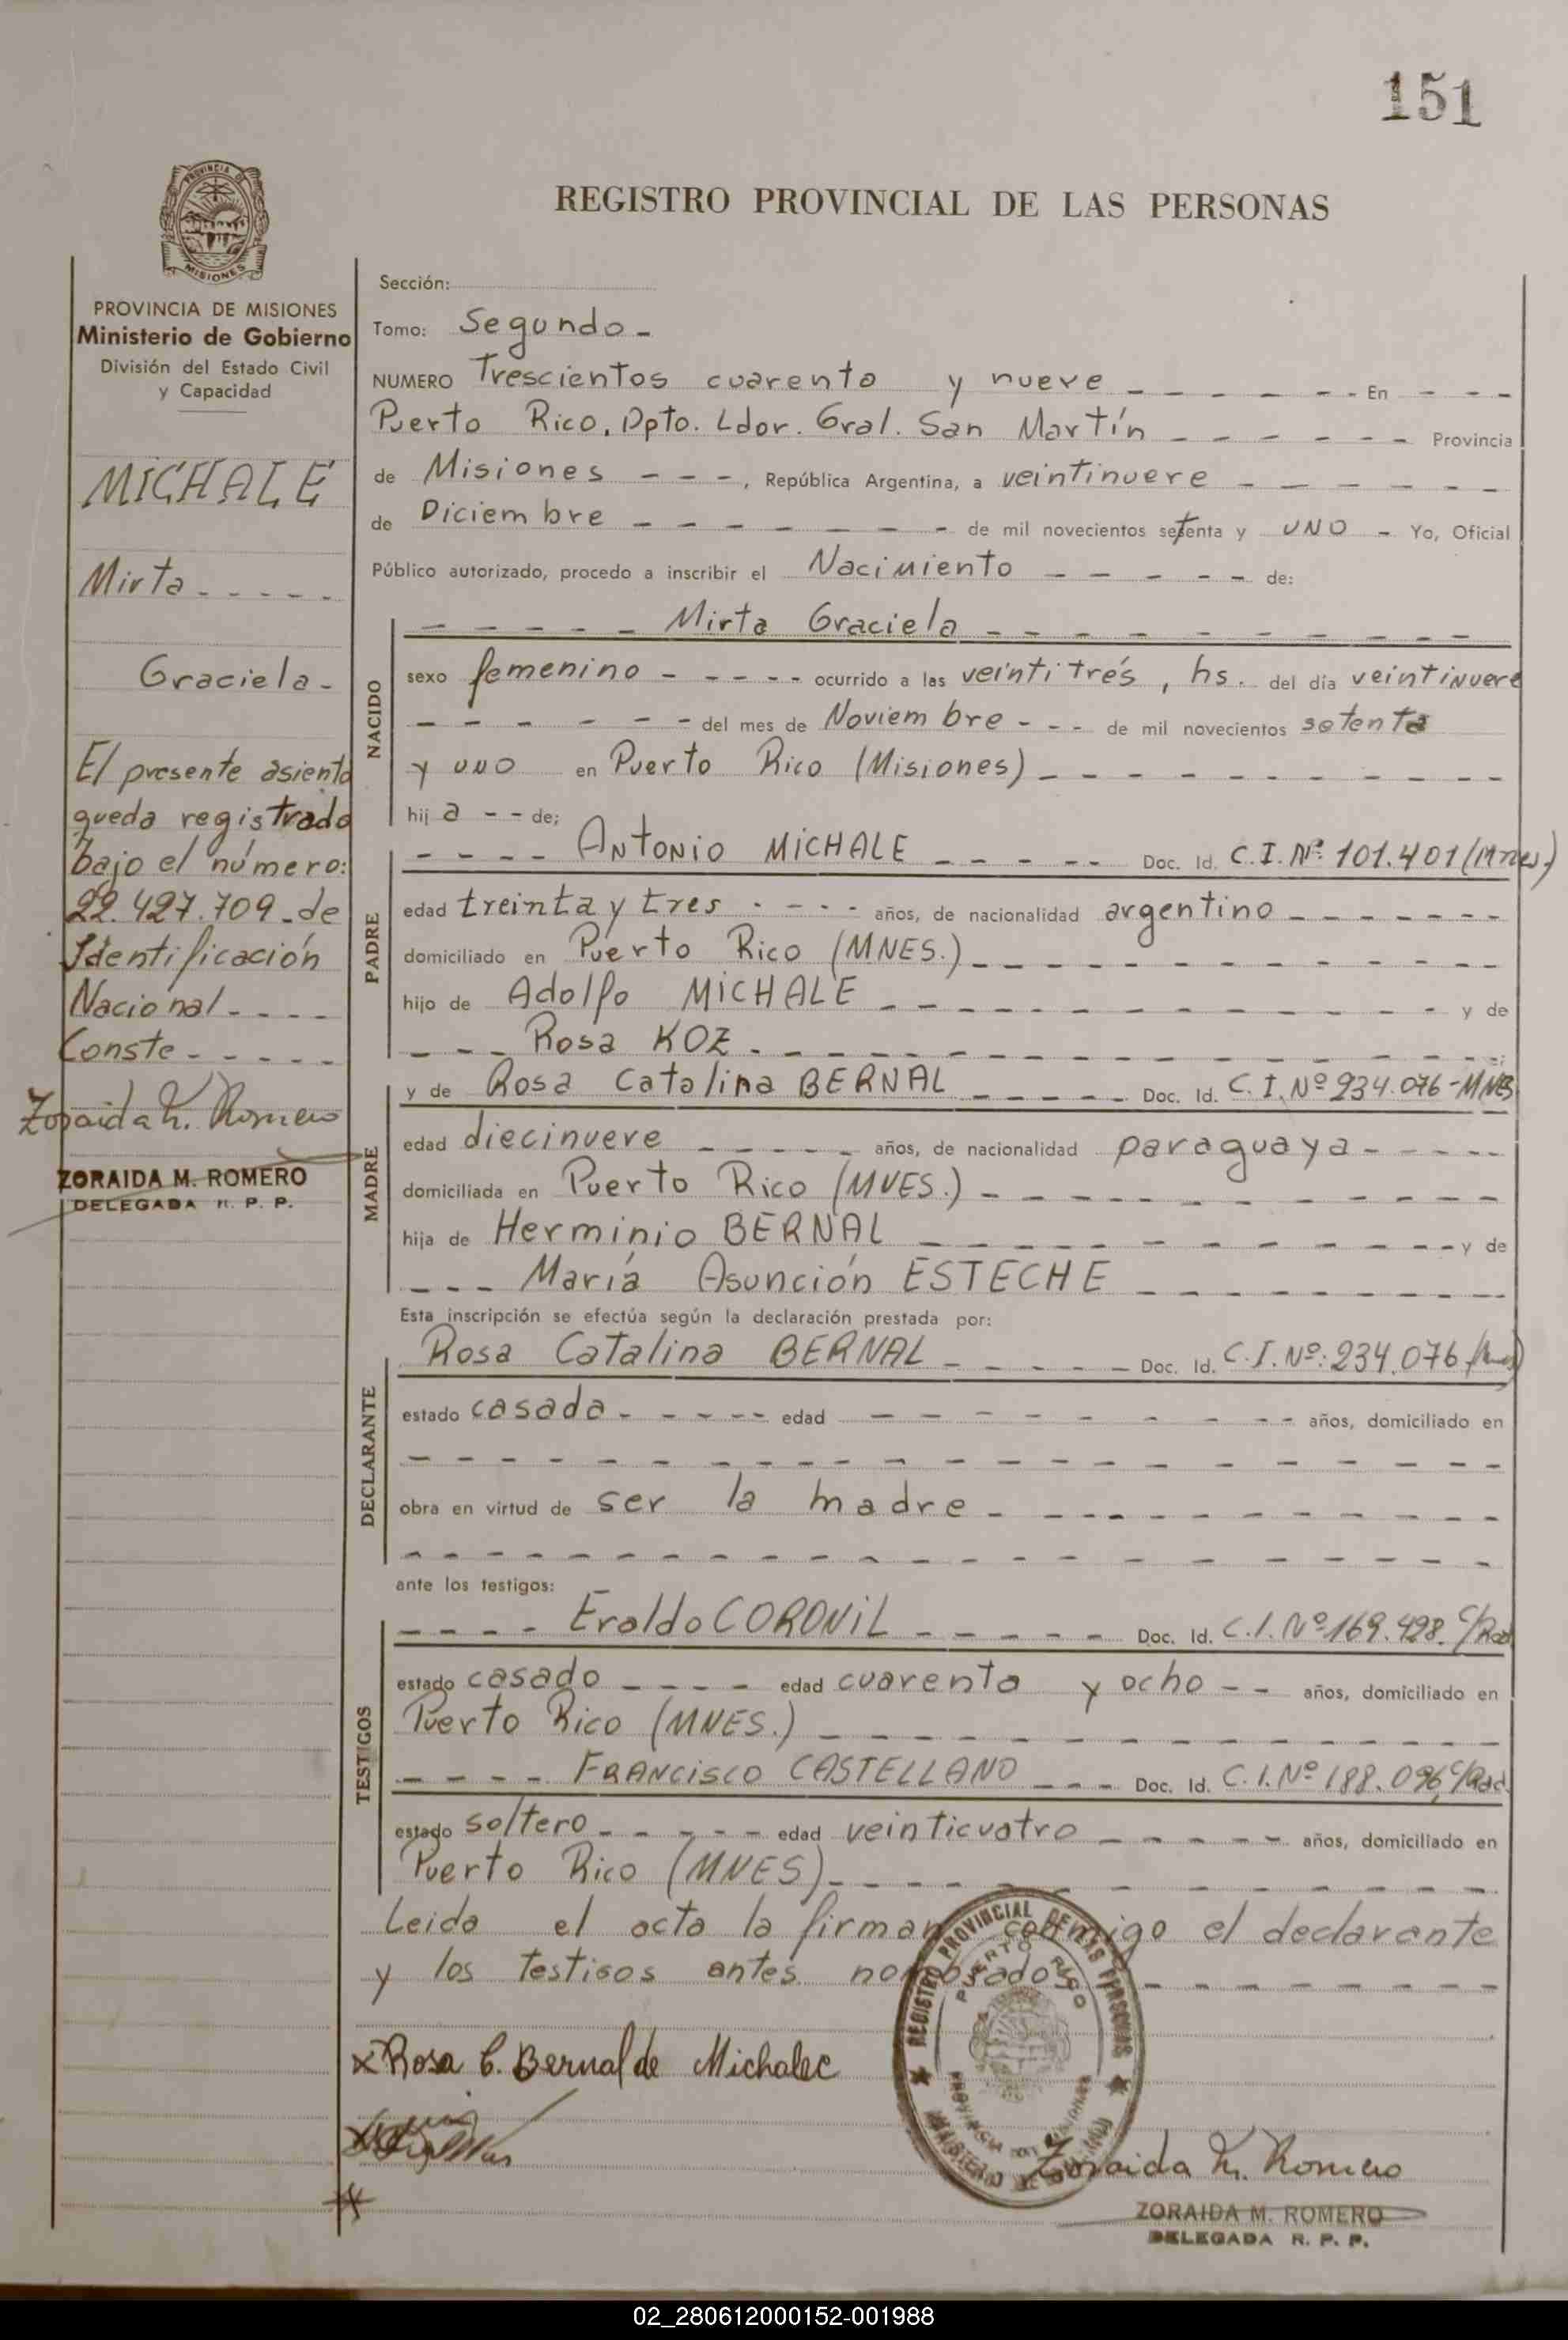 151
REGISTRO PROVINCIAL DE LAS PERSONAS
PROVINCIA DE
MISIONES
PROVINCIA DE MISIONES
Ministerio de Gobierno
División del Estado Civil
y Capacidad
MICHALE
Mirta - - - - -
Graciela -
El presente asiento
queda registrado
bajo el número:
22.427.709 - de
Identificación
Nacional - - - -
Conste - - - - -
Zoraida M. Romero
ZORAIDA M. ROMERO
DELEGADA R. P. P.
Sección:
Tomo: Segundo -
NUMERO Trescientos cuarenta y nueve - - - - - - En - - -
Puerto Rico, Dpto. Ldor. Gral. San Martín - - - - - - Provincia
de Misiones - - -, República Argentina, a veintinueve - - - - - -
de Diciembre - - - - - - - de mil novecientos setenta y UNO - Yo, Oficial
Público autorizado, procedo a inscribir el Nacimiento - - - - - de:
NACIDO
- - - - - Mirta Graciela - - - - - - - - -
sexo femenino - - - - - ocurrido a las veintitrés, hs. del día veintinueve
- - - - - - del mes de Noviembre - - - de mil novecientos setenta
y uno en Puerto Rico (Misiones) - - - - - - - - -
hij a - - de;
PADRE
- - - - ANTONIO MICHALE - - - - - Doc. Id. C.I. Nº 101.401 (Mnes.)
edad treinta y tres - - - - años, de nacionalidad argentino - - - - - - -
domiciliado en Puerto Rico (MNES.) - - - - - - - - - -
hijo de Adolfo MICHALE - - - - - - - - - - y de
- - - Rosa KOZ - - - - - - - - - - - - -
MADRE
y de Rosa Catalina BERNAL - - - - - Doc. Id. C.I. Nº 234.076 - MNES
edad diecinueve - - - - - años, de nacionalidad paraguaya - - - - -
domiciliada en Puerto Rico (MNES.) - - - - - - - - - -
hija de Herminio BERNAL - - - - - - - - - - y de
- - - María Asunción ESTECHE - - - - - - - -
Esta inscripción se efectúa según la declaración prestada por:
DECLARANTE
Rosa Catalina BERNAL - - - - - Doc. Id. C.I. Nº: 234.076
estado casada - - - - - edad - - - - - - - - - años, domiciliado en
- - - - - - - - - - - - - - - - - -
obra en virtud de ser la madre - - - - - - - - - -
- - - - - - - - - - - - - - - - - -
ante los testigos:
TESTIGOS
- - - - Eraldo CORONIL - - - - - Doc. Id. C.I. Nº 169.498. C/Rad
estado casado - - - - edad cuarenta y ocho - - años, domiciliado en
Puerto Rico (MNES.) - - - - - - - - - - - -
- - - - FRANCISCO CASTELLANO - - - Doc. Id. C.I. Nº 188.096, C/Rad.
estado soltero - - - - - edad veinticuatro - - - - - años, domiciliado en
Puerto Rico (MNES) - - - - - - - - - - -
Leida el acta la firman conmigo el declarante
y los testigos antes nombrados - - - - - - -
REGISTRO PROVINCIAL DE LAS PERSONAS
PUERTO RICO
PROVINCIA DE MISIONES
MINISTERIO DE GOBIERNO
x Rosa C. Bernal de Michalec
Zoraida M. Romero
ZORAIDA M. ROMERO
DELEGADA R. P. P.
02_280612000152-001988